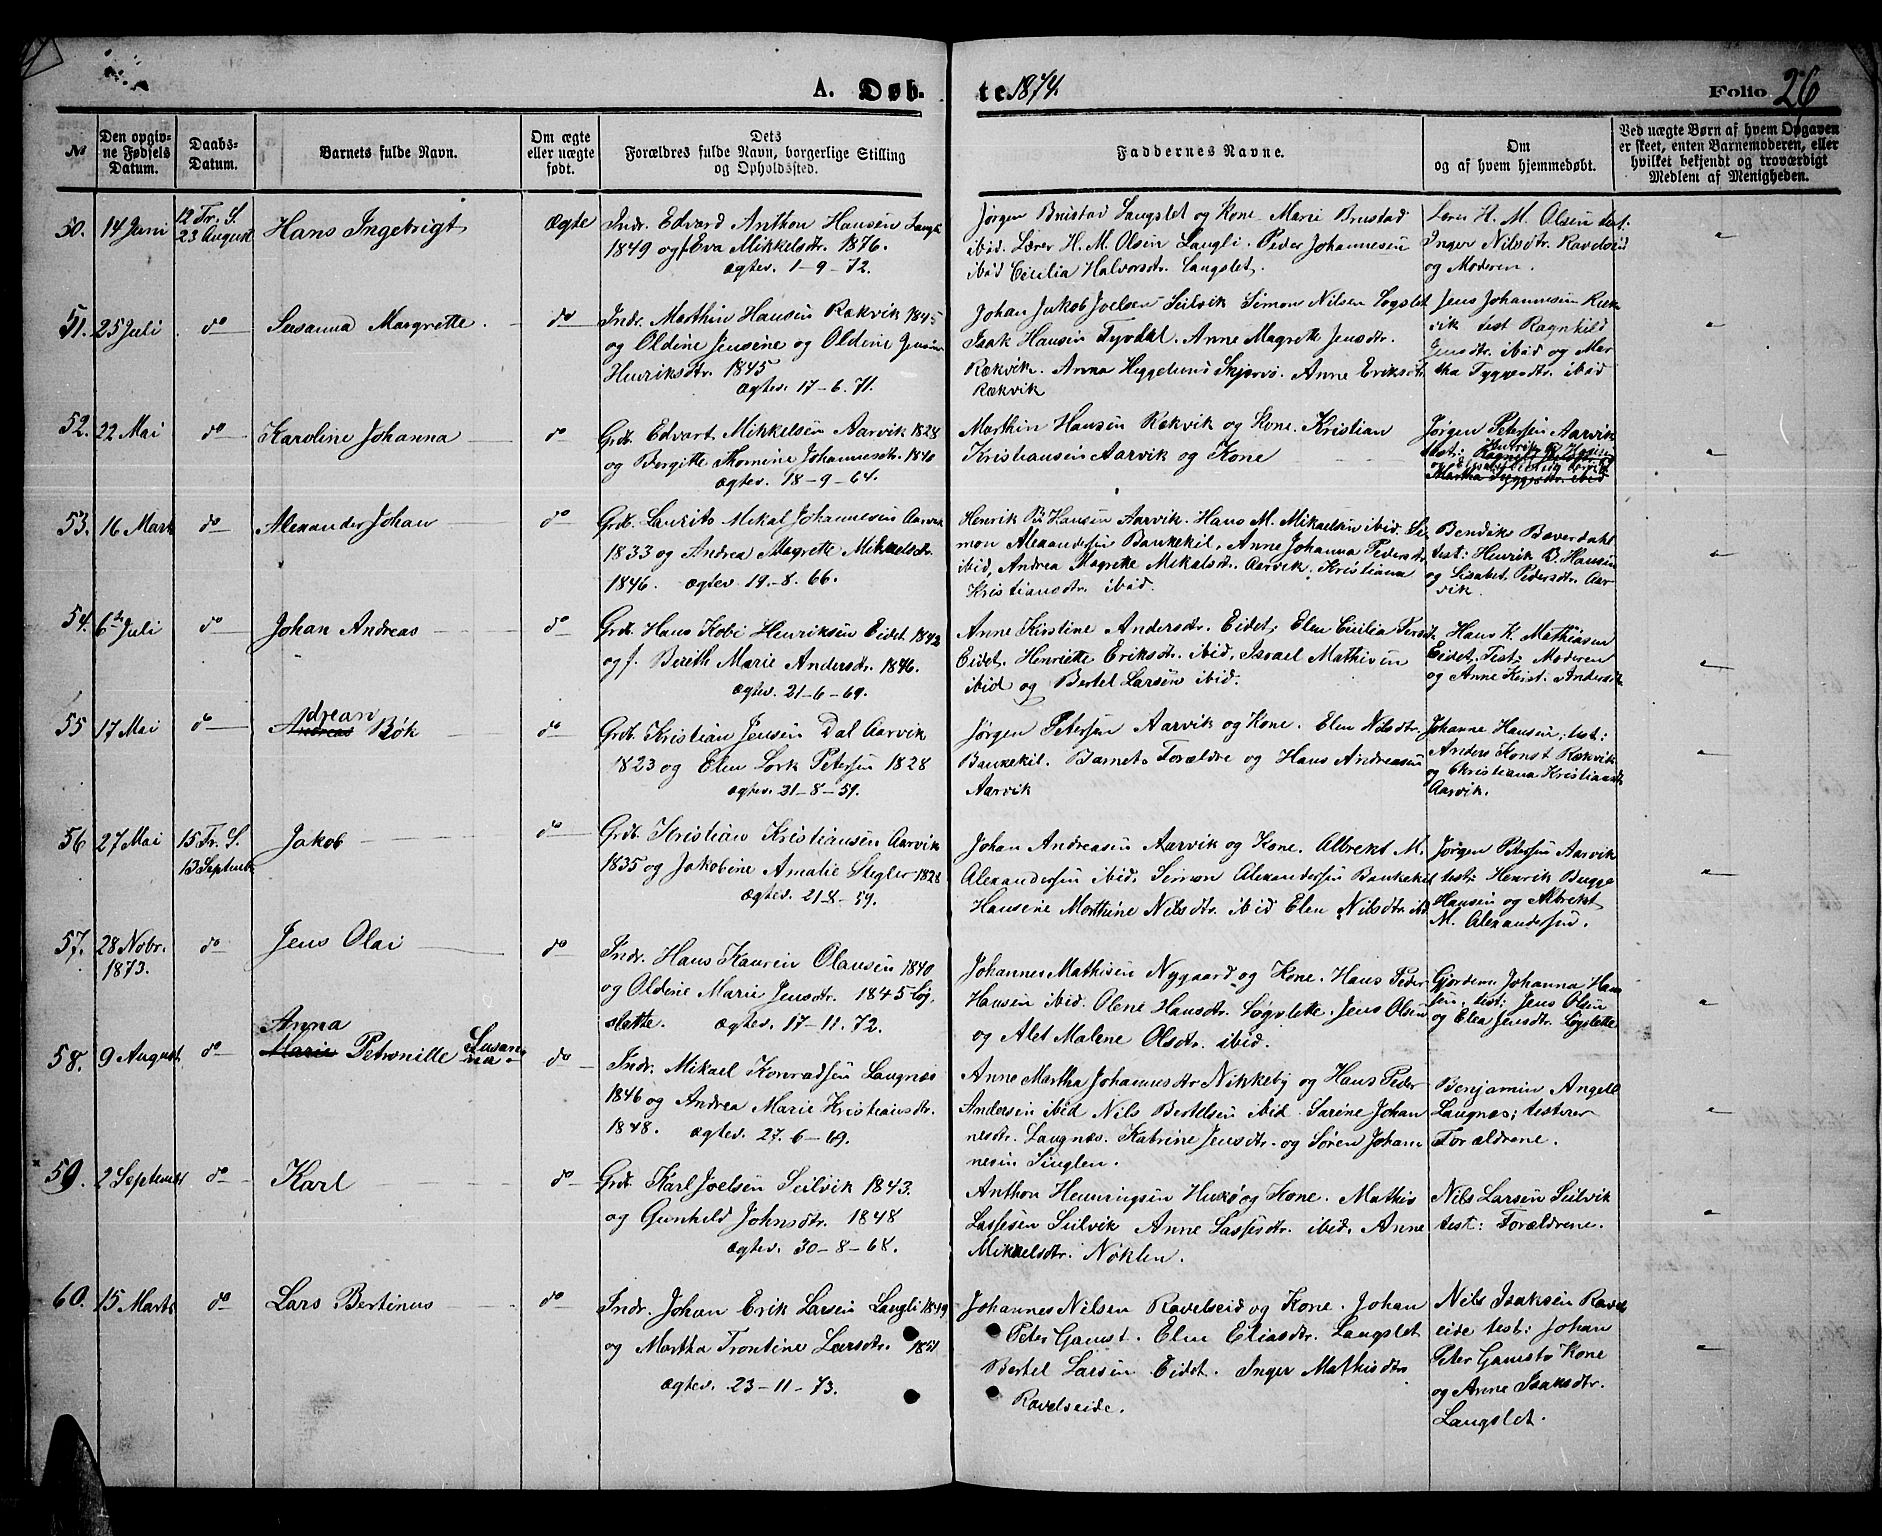 A. Døb-te. 1874. Folio 26
№
Den opgivne Fødsels Datum.
Daabs-Datum.
Barnets fulde Navn.
Om ægte eller uægte født.
Dets Forældres fulde Navn, borgerlige Stilling og Opholdssted.
Faddernes Navne.
Om og af hvem hjemmedøbt.
Ved uægte Børn af hvem Opgaven er skeet, enten Barnemoderen, eller hvilket bekjendt og troværdigt Medlem af Menigheden.
50. 14 Juni 12 Tr. S. 23 August Hans Ingebrigt Ægte
Indr. Edvard Anthon Hansen Langli
1849 og f Eva Mikkelsdtr. 1876.
Ægtev. 1-9-72.
Jørgen Brustad Langslet og Kone Marie Brustad
ibid. Lærer H. M. Olsen Langli. Peder Johannesen
ibid Cecilia Halvorsdtr. Langslet.
Lærer H. M. Olsen test:
Inger Nilsdtr. Ravelseid
og Moderen.
51. 25 Juli do Susanna Margrette do
Indr. Marthin Hansen Rækvik 1845
og Oldine Jensine og Oldine Jensine
Henriksdtr. 1845
Ægtev. 17-6.71.
Johan Jakob Joelsen Seilvik Simon Nilsen Løgslet
Isak Hansen Tyvdal. Anne Magrette Jensdtr.
Rækvik. Anna Heggelund Skjervø. Anne Eriksdtr.
Rækvik
Jens Johannesen Ræk
vik test Ragnhild
Jensdtr. ibid og Mar
tha Tyggesdtr. ibid
52. 22 Mai do Karoline Johanna do
Grdb. Edvart Mikkelsen Aarvik 1828
og Borgitte Thomine Johannesdtr. 1840
Ægtev. 18-9-64.
Marthin Hansen Rækvik og Kone. Kristian
Kristiansen Aarvik og Kone
Jørgen Petersen Aarvik
test: Henrik B. Hansen
Martha Tyggesdtr. ibid
53. 16 Marts do Alexander Johan do
Grdb. Laurits Mikal Johannesen Aarvik
1833 og Andrea Magrette Mikkelsdtr.
1846. Ægtev 19-8-66.
Henrik B. Hansen Aarvik. Hans M. Mikaelsen ibid. Si
mon Alexandersen Baukekil. Anne Johanna Pedersdtr.
ibid, Andrea Magrete Mikalsdtr. Aarvik. Kristiana
Kristiansdtr. ibid.
Bendike Bæverdahl
test: Henrik B. Hansen
og Lisabet Pedersdtr. Aar
vik.
54. 6te Juli do Johan Andreas do
Grdb. Hans Kobi Henriksen Eidet 1842
og f. Berith Marie Andersdtr. 1846.
Ægtev. 21-6-69.
Anne Kirstine Andersdtr. Eidet, Elen Cecilia Persdtr.
Eidet, Henriette Eriksdtr. ibid, Israel Mathisen
ibid og Bertel Larsen ibid.
Hans K. Mathiasen
Eidet. Test: Moderen
og Anne Kirst. Andersdtr.
55 17 Mai do Adrean Andreas Bøk do
Grdb. Kristian Jensen Dal Aarvik
1823 og Elen Lork Petersen 1828
Ægtev. 21-8-59.
Jørgen Petersen Aarvik og Kone. Elen Nilsdtr.
Baukekil. Barnets Forældre og Hans Andreasen
Aarvik
Johanne Hansen; test:
Anders Konst Rækvik
og Christiana Kristiansdtr.
Aarvik.
56 27 Mai 15 Tr. S. 13 Septembr Jakob do
Grdb. Kristian Kristiansen Aarvik
1835 og Jakobine Amalie Stegler 1828
Ægtev. 21-8-59.
Johan Andreasen Aarvik og Kone. Albrekt M.
Alexandersen ibid. Simon Alexandersen Baukekil
Hansine Marthine Nilsdtr. ibid Elen Nilsdtr. ibid
Jørgen Petersen Aarvik
test: Henrik Bugge
Hansen og Albrekt
M. Alexandersen.
57. 28 Nobr. 1873. do Jens Olai do
Indr. Hans Kaurin Olausen 1840
og Oldine Marie Jensdtr. 1845 Løg
slette. Ægtev. 17-11.72.
Johannes Mathisen Nygaard og Kone. Hans Peder
Hansen ibid. Olene Hansdtr. Løgslette. Jens Olsen
og Alet Malene Olsdtr. ibid.
Gjordem. Johanna Han
sen, test: Jens Olsen
og Elea Jensdtr. Løgslette
58. 9 August do Anna Maria Petronille Susanna do
Indr. Mikael Konradsen Langnæs
1846 og Andrea Marie Kristiansdtr.
1848. Ægtev. 27.6-69.
Anne Martha Johannesdtr Nikkeby og Hans Peder
Andersen ibid Nils Bertelsen ibid Sarine Johan
nesdtr. Langnæs. Katrine Jensdtr. og Søren Johan
nesen Singlen.
Benjamin Angell
Langnæs; testerer
Forældrene.
59. 2 Septembr do Karl do
Grdb. Karl Joelsen Seilvik 1843.
og Gunhild Johnsdtr. 1848
Ægtev. 30-8-68.
Anthon Henningsen Hukø og Kone. Mathis
Lassesen Seilvik Anne Lassesdtr. ibid. Anne
Mikkelsdtr. Nøklen.
Nils Larsen Seilvik
test: Forældrene.
60. 15 Marts do Lars Bertinus do
Indr. Johan Erik Larsen Langli 1849
og Martha Trontine Larsdtr. 1851
Ægtev. 23-11-73.
Johannes Nilsen Ravelseid og Kone. Johan
Peter Gamst. Elen Eliasdtr. Langslet
Bertel Larsen Eidet. Inger Mathisdtr.
Ravelseide.
Nils Isaksen Ravels
eide test: Johan
Peter Gamsts Kone
og Anne Isaksdtr.
Langslet.